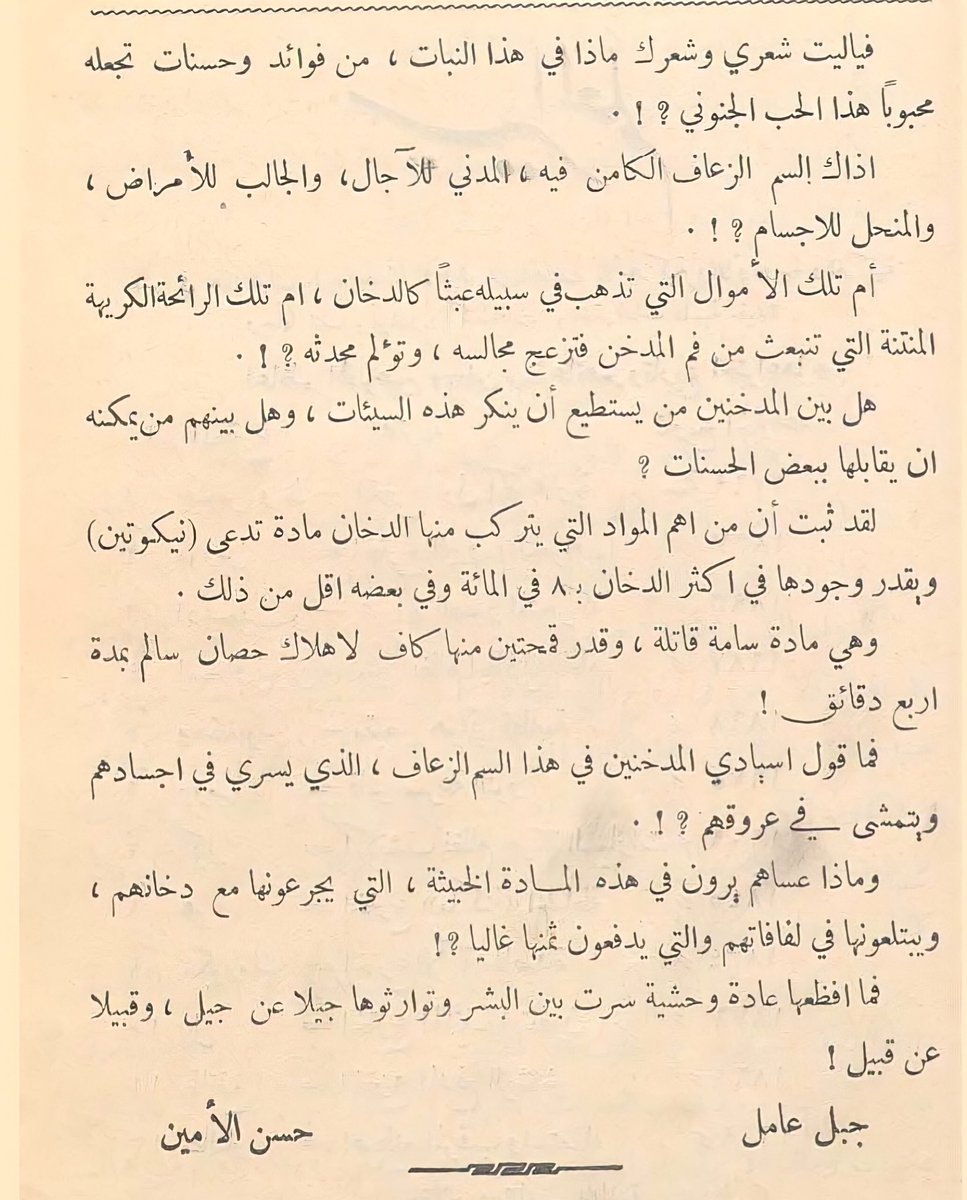 فياليت شعري وشعرك ماذا في هذا النبات ، من فوائد وحسنات تجعله
محبوباً هذا الحب الجنوني ؟ ! ٠
اذاك السم الزعاف الكامن فيه ، المدني للآجال ، والجالب للأمراض ،
والمنحل للاجسام ؟ ! ٠
أم تلك الأموال التي تذهب في سبيله عبثاً كالدخان ، ام تلك الرائحة الكريهة
المنتنة التي تنبعث من فم المدخن فتزعج مجالسه ، وتؤلم محدثه ؟ ! ٠
هل بين المدخنين من يستطيع أن ينكر هذه السيئات ، وهل بينهم من يمكنه
ان يقابلها ببعض الحسنات ؟
لقد ثبت أن من اهم المواد التي يتركب منها الدخان مادة تدعى (نيكوتين)
ويقدر وجودها في اكثر الدخان بـ ٨ في المائة وفي بعضه اقل من ذلك ٠
وهي مادة سامة قاتلة ، وقدر قمحتين منها كاف لاهلاك حصان سالم بمدة
اربع دقائق !
فما قول اسيادي المدخنين في هذا السم الزعاف ، الذي يسري في اجسادهم
ويتمشى في عروقهم ؟ ! ٠
وماذا عساهم يرون في هذه المادة الخبيثة ، التي يجرعونها مع دخانهم ،
ويبتلعونها في لفافاتهم والتي يدفعون ثمنها غاليا ؟!
فما افظعها عادة وحشية سرت بين البشر وتوارثوها جيلا عن جيل ، وقبيلا
عن قبيل !
جبل عامل حسن الأمين